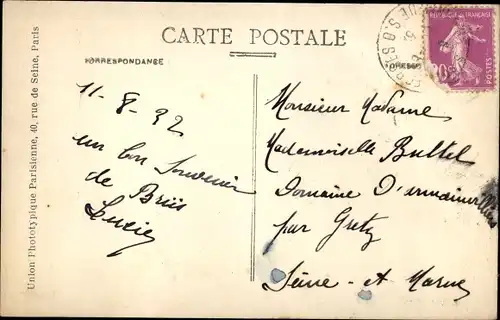 CARTE POSTALE
CORRESPONDANCE
11-8-32
un bon Souvenir
de Briis
Lucie
Monsieur Madame
Mademoiselle Buttel
Domaine D'armainvilliers
par Gretz
Seine-et-Marne
RÉPUBLIQUE FRANÇAISE
20c
POSTES
Union Phototypique Parisienne, 40, rue de Seine, Paris